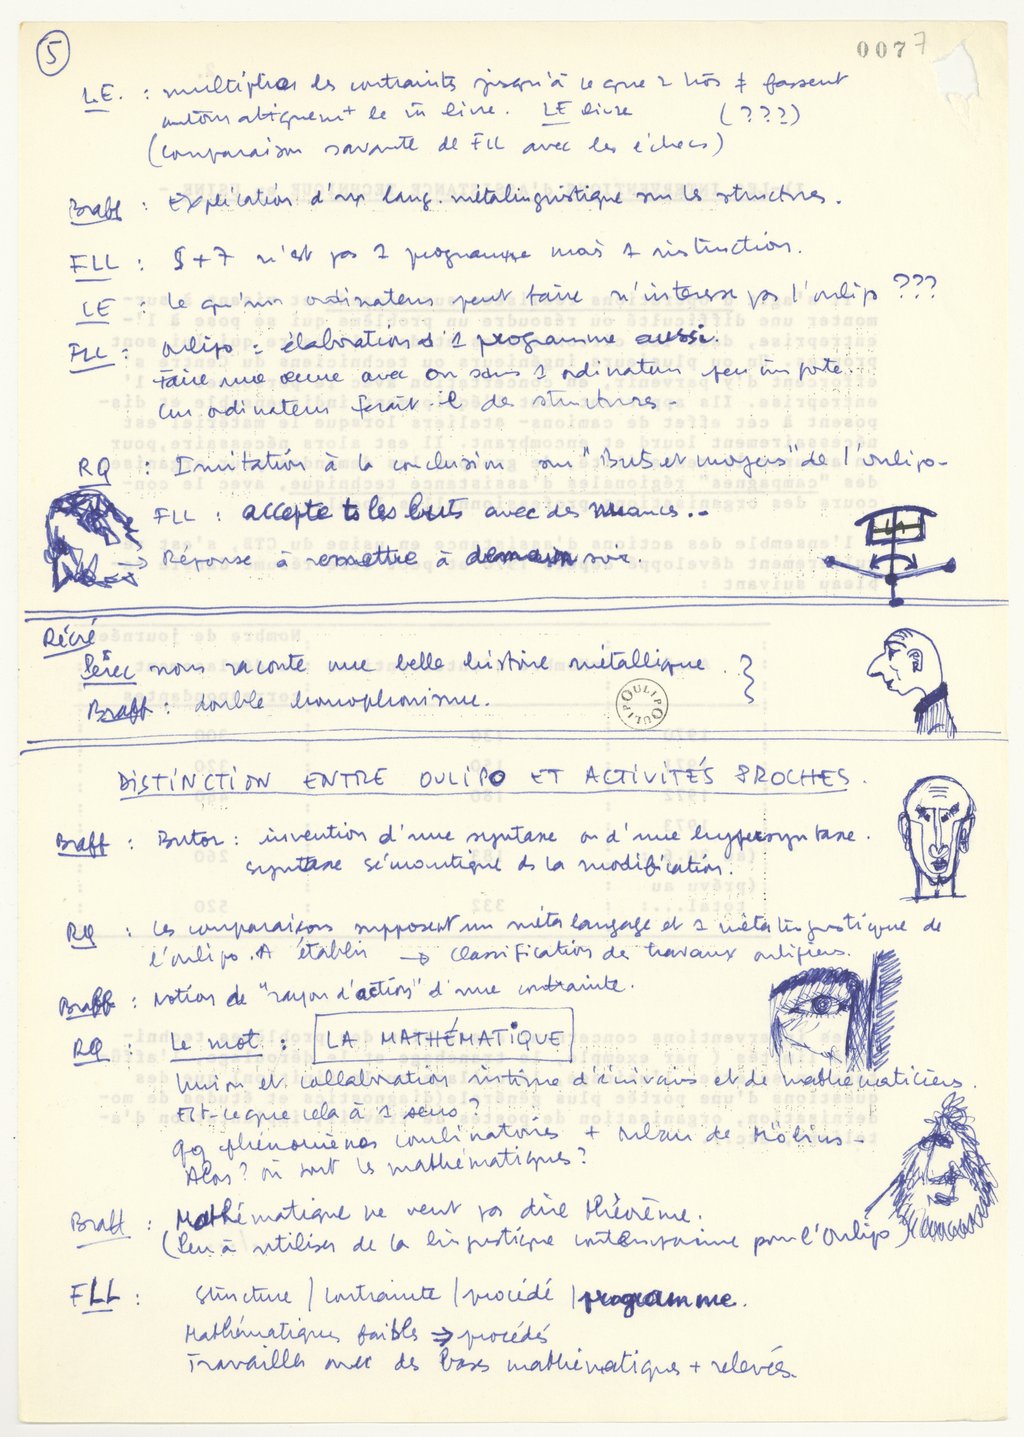 5
0077
LE. : multiplier les contraintes jusqu'à ce que 2 ≠ fassent
automatiquem+ le m livre. LE livre (???)
(comparaison savante de FLL avec les échecs)
Braff : Explication d'un lang. métalinguistique sur les structures.
FLL : S+7 n'est pas 1 programme mais 1 instruction.
LE : Ce qu'un ordinateur peut faire n'intéresse pas l'oulipo ???
FLL : oulipo = élaboration d'1 programme aussi.
Faire une œuvre avec ou sans 1 ordinateur peu importe.
Un ordinateur ferait-il des structures -
RQ : Invitation à la conclusion sur "Buts et moyens" de l'oulipo-
FLL : accepte ts les buts avec des nuances..
→ Réponse à remettre à demain soir.
Récré
Perec nous raconte une belle histoire métallique.
Braff : double homophonisme.
OULIPO OULIPO
DISTINCTION ENTRE OULIPO ET ACTIVITÉS PROCHES.
Braff : Butor : invention d'une syntaxe ou d'une hypersyntaxe.
syntaxe sémantique ds la modification.
RQ : Les comparaisons supposent un méta langage et 1 métalinguistique de
l'oulipo. A établir → Classification des travaux oulipiens.
Braff : Notion de "rayon d'action" d'une contrainte.
RQ : Le mot : LA MATHÉMATIQUE
Union et collaboration intime d'écrivains et de mathématiciens.
Est-ce que cela a 1 sens ?
Qq phénomènes combinatoires + ruban de Möbius -
Alors ? où sont les mathématiques ?
Braff : Mathématique ne veut pas dire théorème.
(Peu à utiliser de la linguistique contemporaine pour l'Oulipo)
FLL : Structure / contrainte / procédé / programme.
Mathématiques faibles → procédés
Travailler avec des bases mathématiques + relevées.